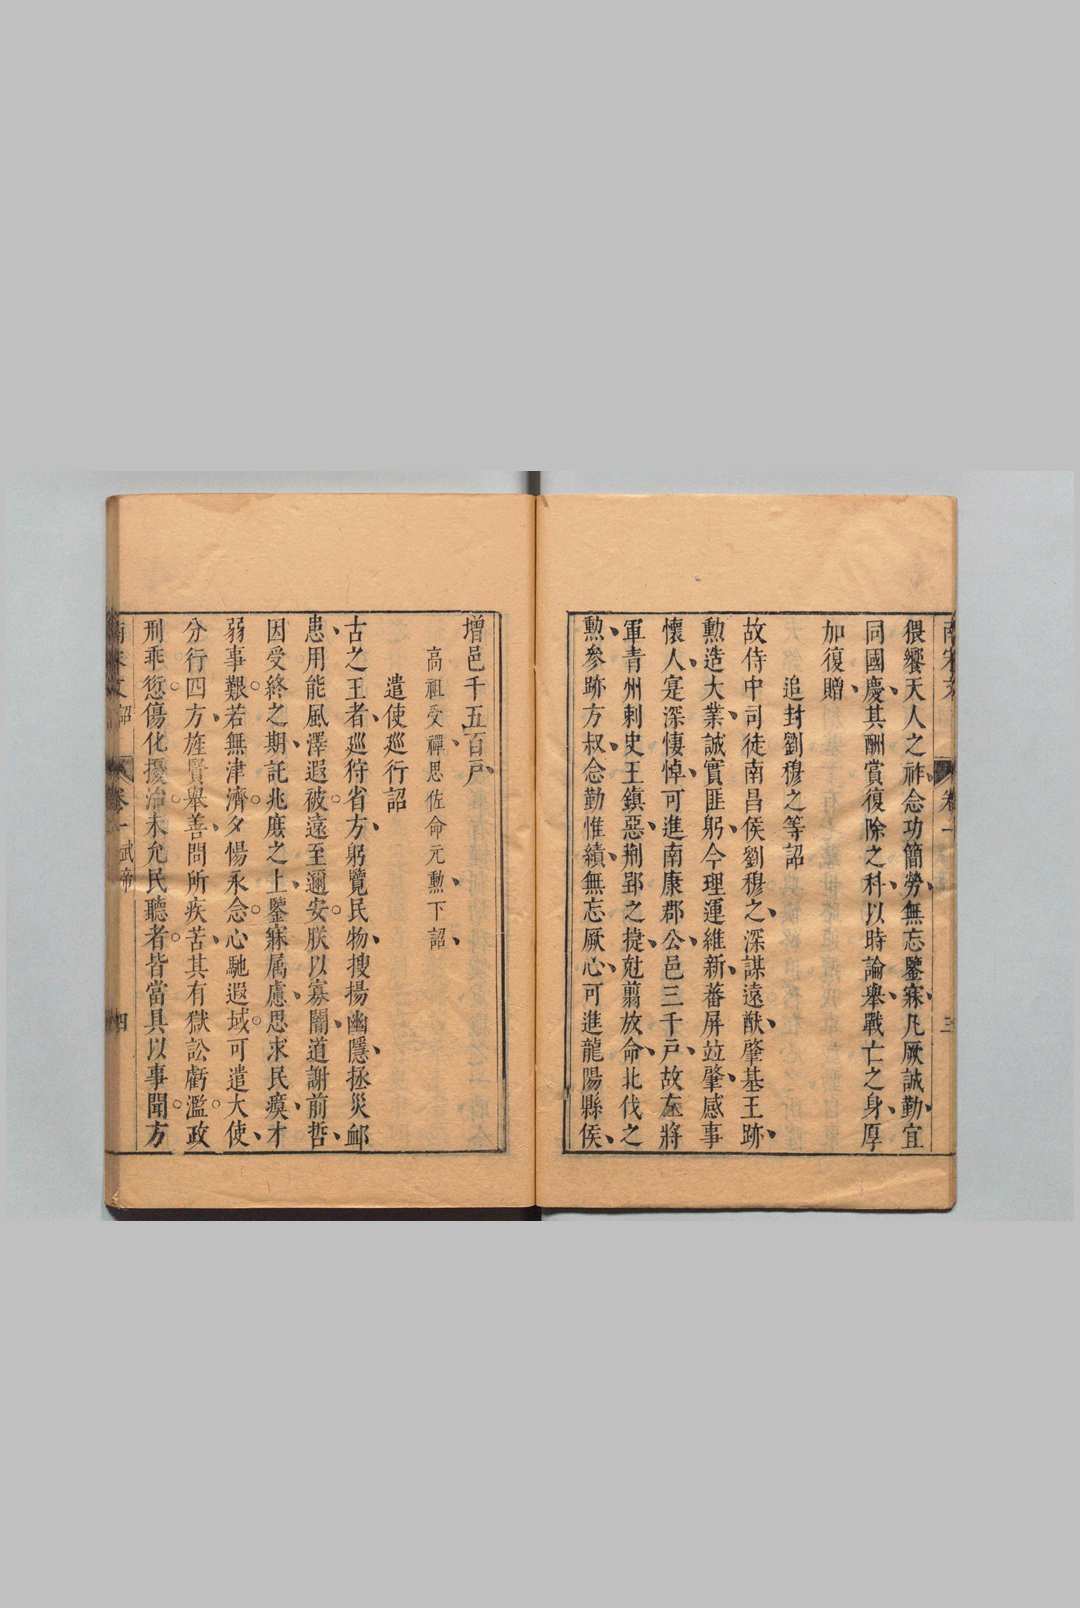 猥饗天人之祚念功簡勞無忘鑒寐凡厥誠勤宜
同國慶其酬賞復除之科以時論舉戰亡之身厚
加復贈
追封劉穆之等詔
故侍中司徒南昌侯劉穆之深謀遠猷肇基王跡
勲造大業誠實匪躬今理運維新蕃屏竝肇感事
懷人寔深悽悼可進南康郡公邑三千戸故左將
軍青州刺史王鎮惡荆郢之捷尅翦放命北伐之
勲參跡方叔念勤惟績無忘厥心可進龍陽縣侯
增邑千五百戸
高祖受禪思佐命元勲下詔
遣使廵行詔
古之王者廵狩省方躬覽民物搜揚幽隱拯災邺
患用能風澤遐被遠至邇安朕以寡闇道謝前哲
因受終之期託兆庶之上鑒寐属慮思求民瘼才
弱事艱若無津濟夕惕永念心馳遐域可遣大使
分行四方旌賢舉善問所疾苦其有獄訟虧濫政
刑乖愆傷化擾治未允民聽者皆當具以事聞方
南宋文 詔 卷一 武帝 四